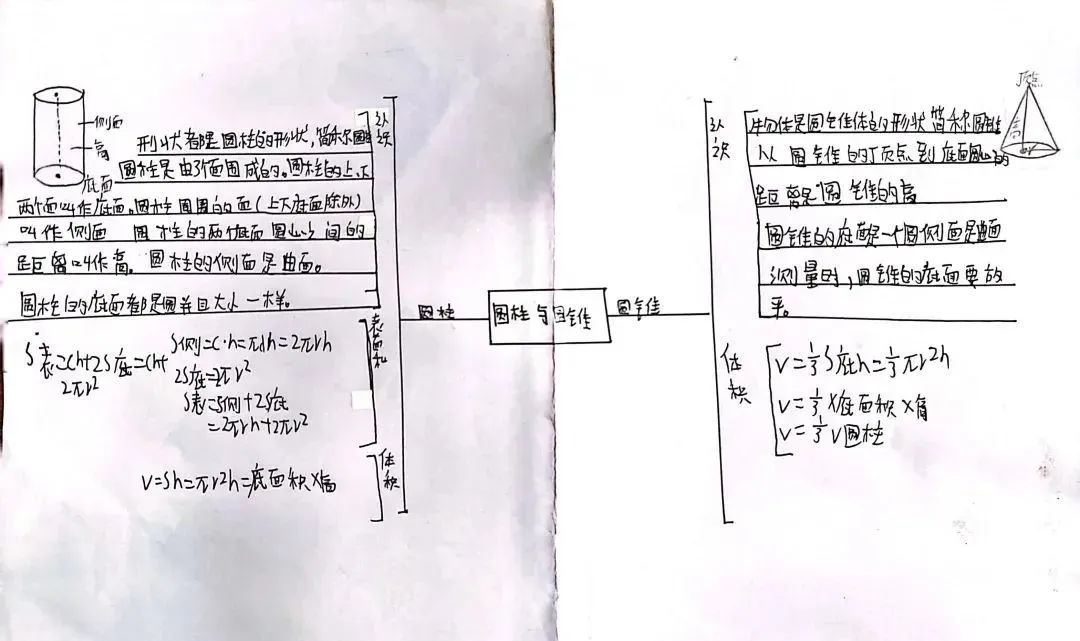 侧面
高
底面
认识
形状都是圆柱的形状，简称圆柱
圆柱是由3个面围成的。圆柱的上、下
两个面叫作底面。圆柱周围的面（上下底面除外）
叫作侧面 圆柱的两个底面圆心之间的
距离叫作高。圆柱的侧面是曲面。
圆柱的底面都是圆并且大小一样。
表面积
S表=Ch+2S底=Ch+
2πr²
S侧=C·h=πdh=2πrh
2S底=2πr²
S表=S侧+2S底
=2πrh+2πr²
体积
V=Sh=πr²h=底面积×高
圆柱
圆柱与圆锥
圆锥
认识
顶点
高
物体是圆锥体的形状简称圆锥
从圆锥的顶点到底面圆心的
距离是圆锥的高
圆锥的底面是一个圆侧面是曲面
测量时，圆锥的底面要放
平。
体积
V=⅓S底h=⅓πr²h
V=⅓×底面积×高
V=⅓V圆柱